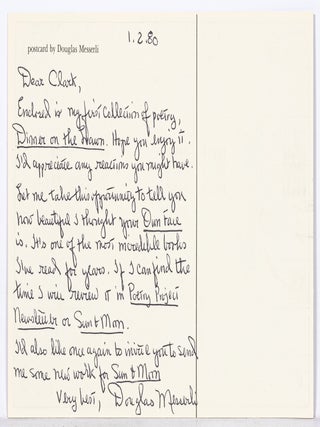 1.2.80
postcard by Douglas Messerli
Dear Clark,
Enclosed is my first collection of poetry,
Dinner on the Lawn. Hope you enjoy it.
I'd appreciate any reactions you might have.
Let me take this opportunity to tell you
how beautiful I thought your Own Face
is. It's one of the most incredible books
I've read for years. If I can find the
time I will review it in Poetry Project
Newsletter or Sun & Moon.
I'd also like once again to invite you to send
me some new work for Sun & Moon
Very best, Douglas Messerli